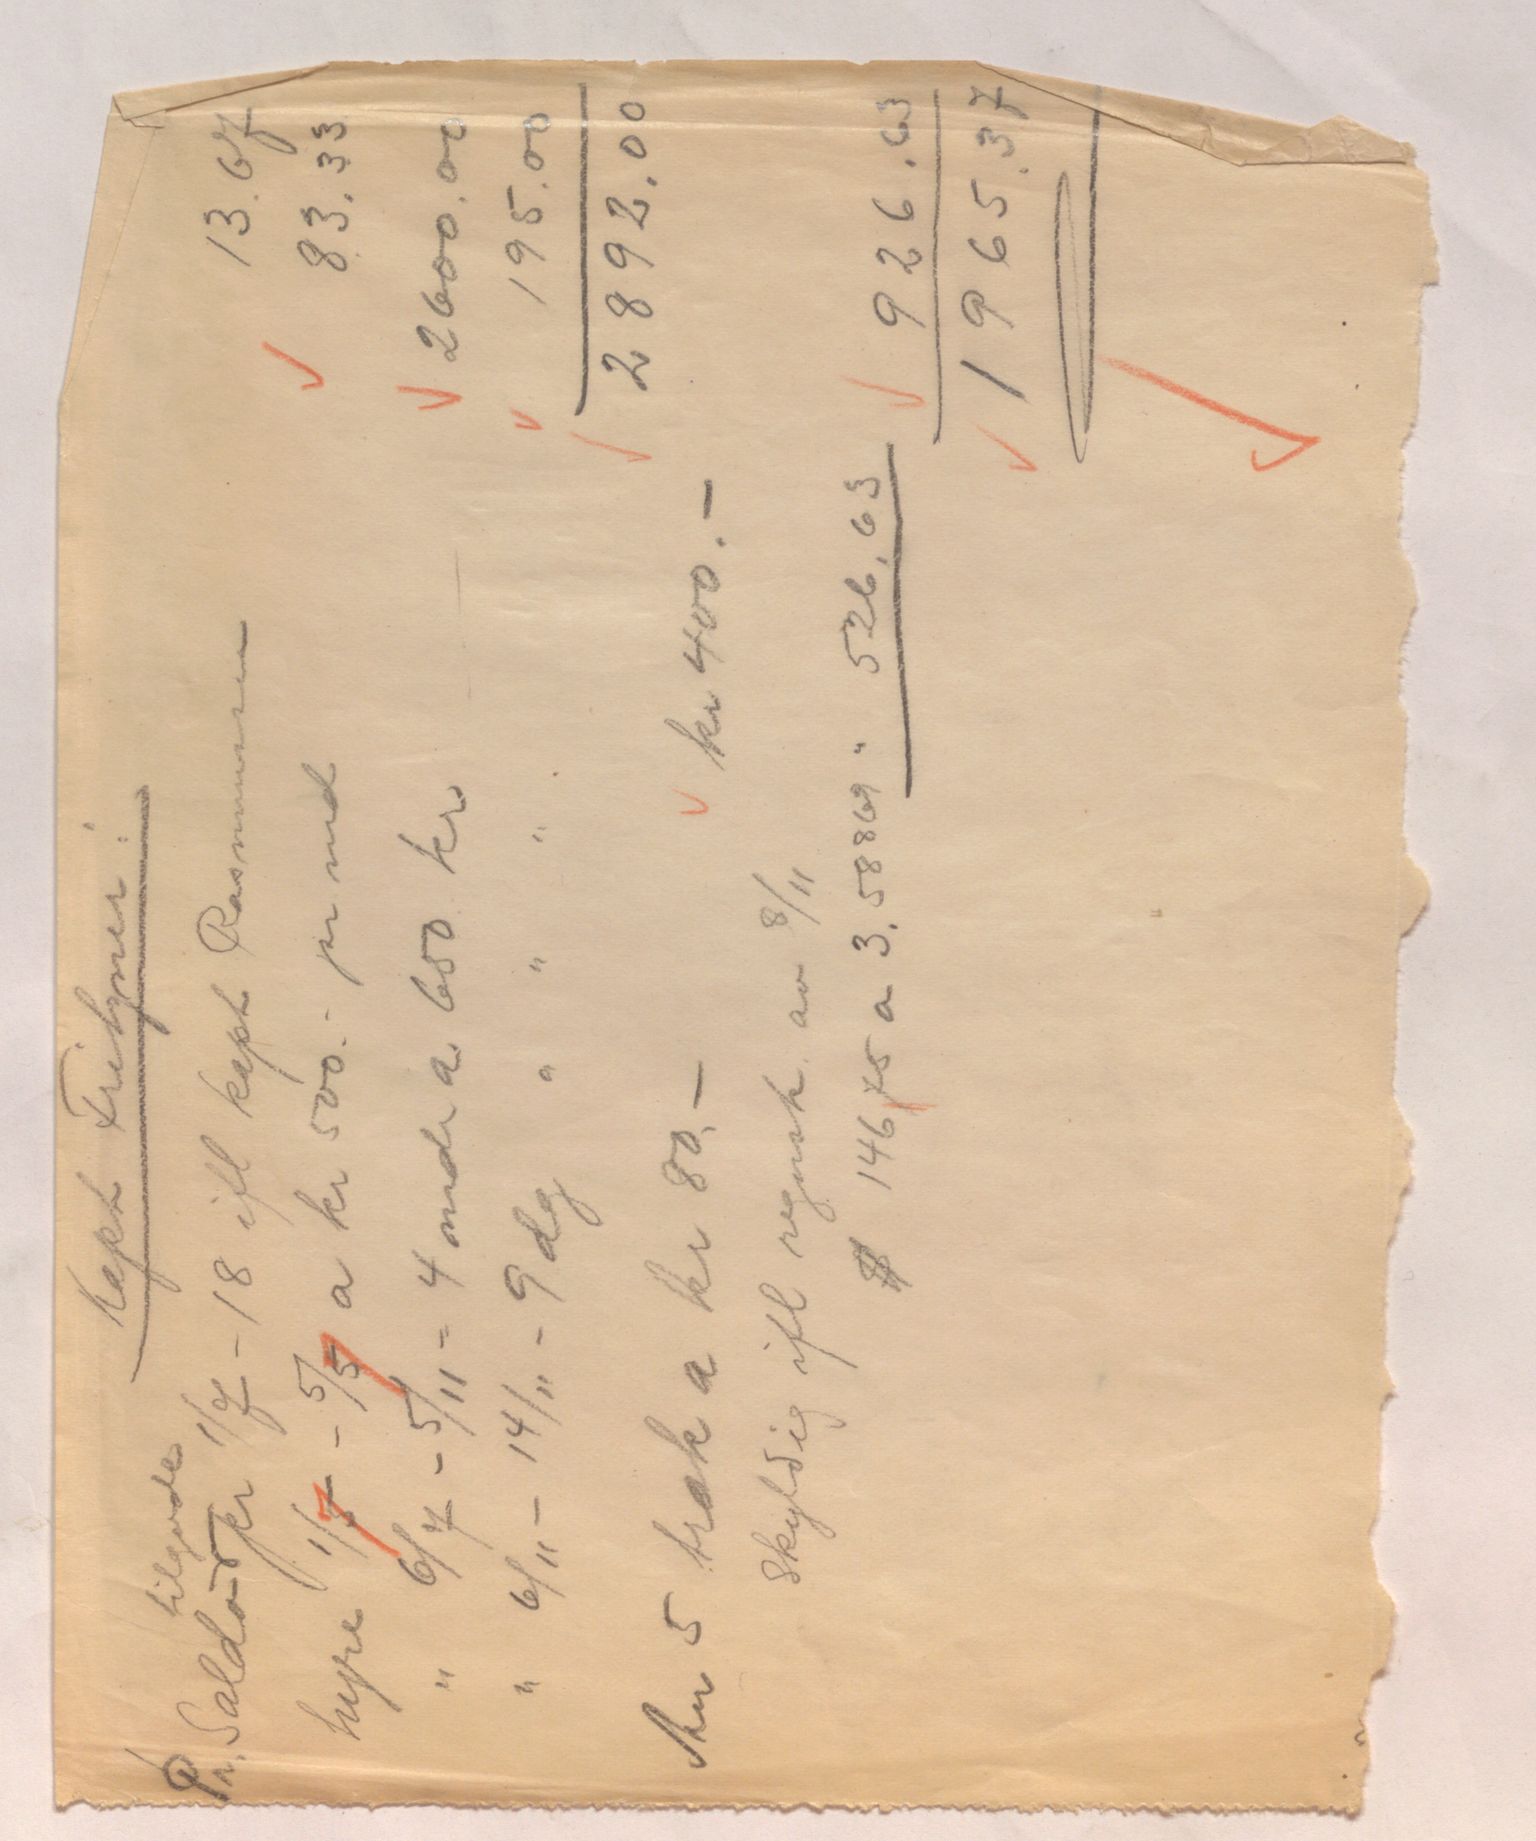 Kapt Frihyner:
tilgode
Pr. Saldo pr 1/7 - 18 ifl kapt Rasmussen 13.67
hyre 1/7 - 5/7 a kr 500.- pr mnd 83.33
" 6/7 - 5/11 = 4 mndr a 650 kr 2600.00
" 6/11 - 14/11 - 9 dg " " " 195.00
2892.00
5 træk a kr 80.- kr 400.-
Skyldig ifl regnsk. av 8/11
$ 146.75 a 3.58869 " 526.63 926.63
1965.37